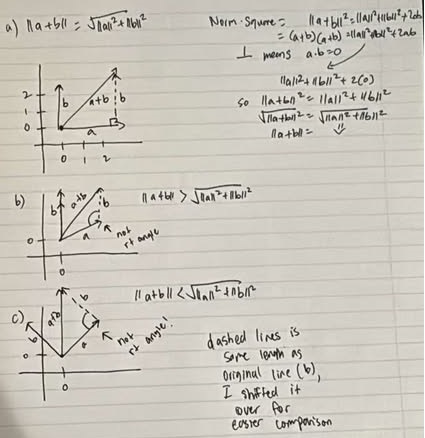 a) ||a+b|| = √||a||²+||b||²
Norm-Square = ||a+b||²=||a||²+||b||²+2ab
= (a+b)(a+b)=||a||²+||b||²+2ab
⊥ means a·b=0
||a||²+||b||²+2(0)
so ||a+b||² = ||a||²+||b||²
√||a+b||² = √||a||²+||b||²
||a+b|| =
2
1
0
b
a+b
b
a
0 1 2
b)
||a+b|| > √||a||²+||b||²
b
a+b
b
a
not
rt angle
0
0
||a+b|| < √||a||²+||b||²
c)
b
a+b
b
a
not
rt angle!
0
0
dashed lines is
same length as
original line (b),
I shifted it
over for
easier comparison